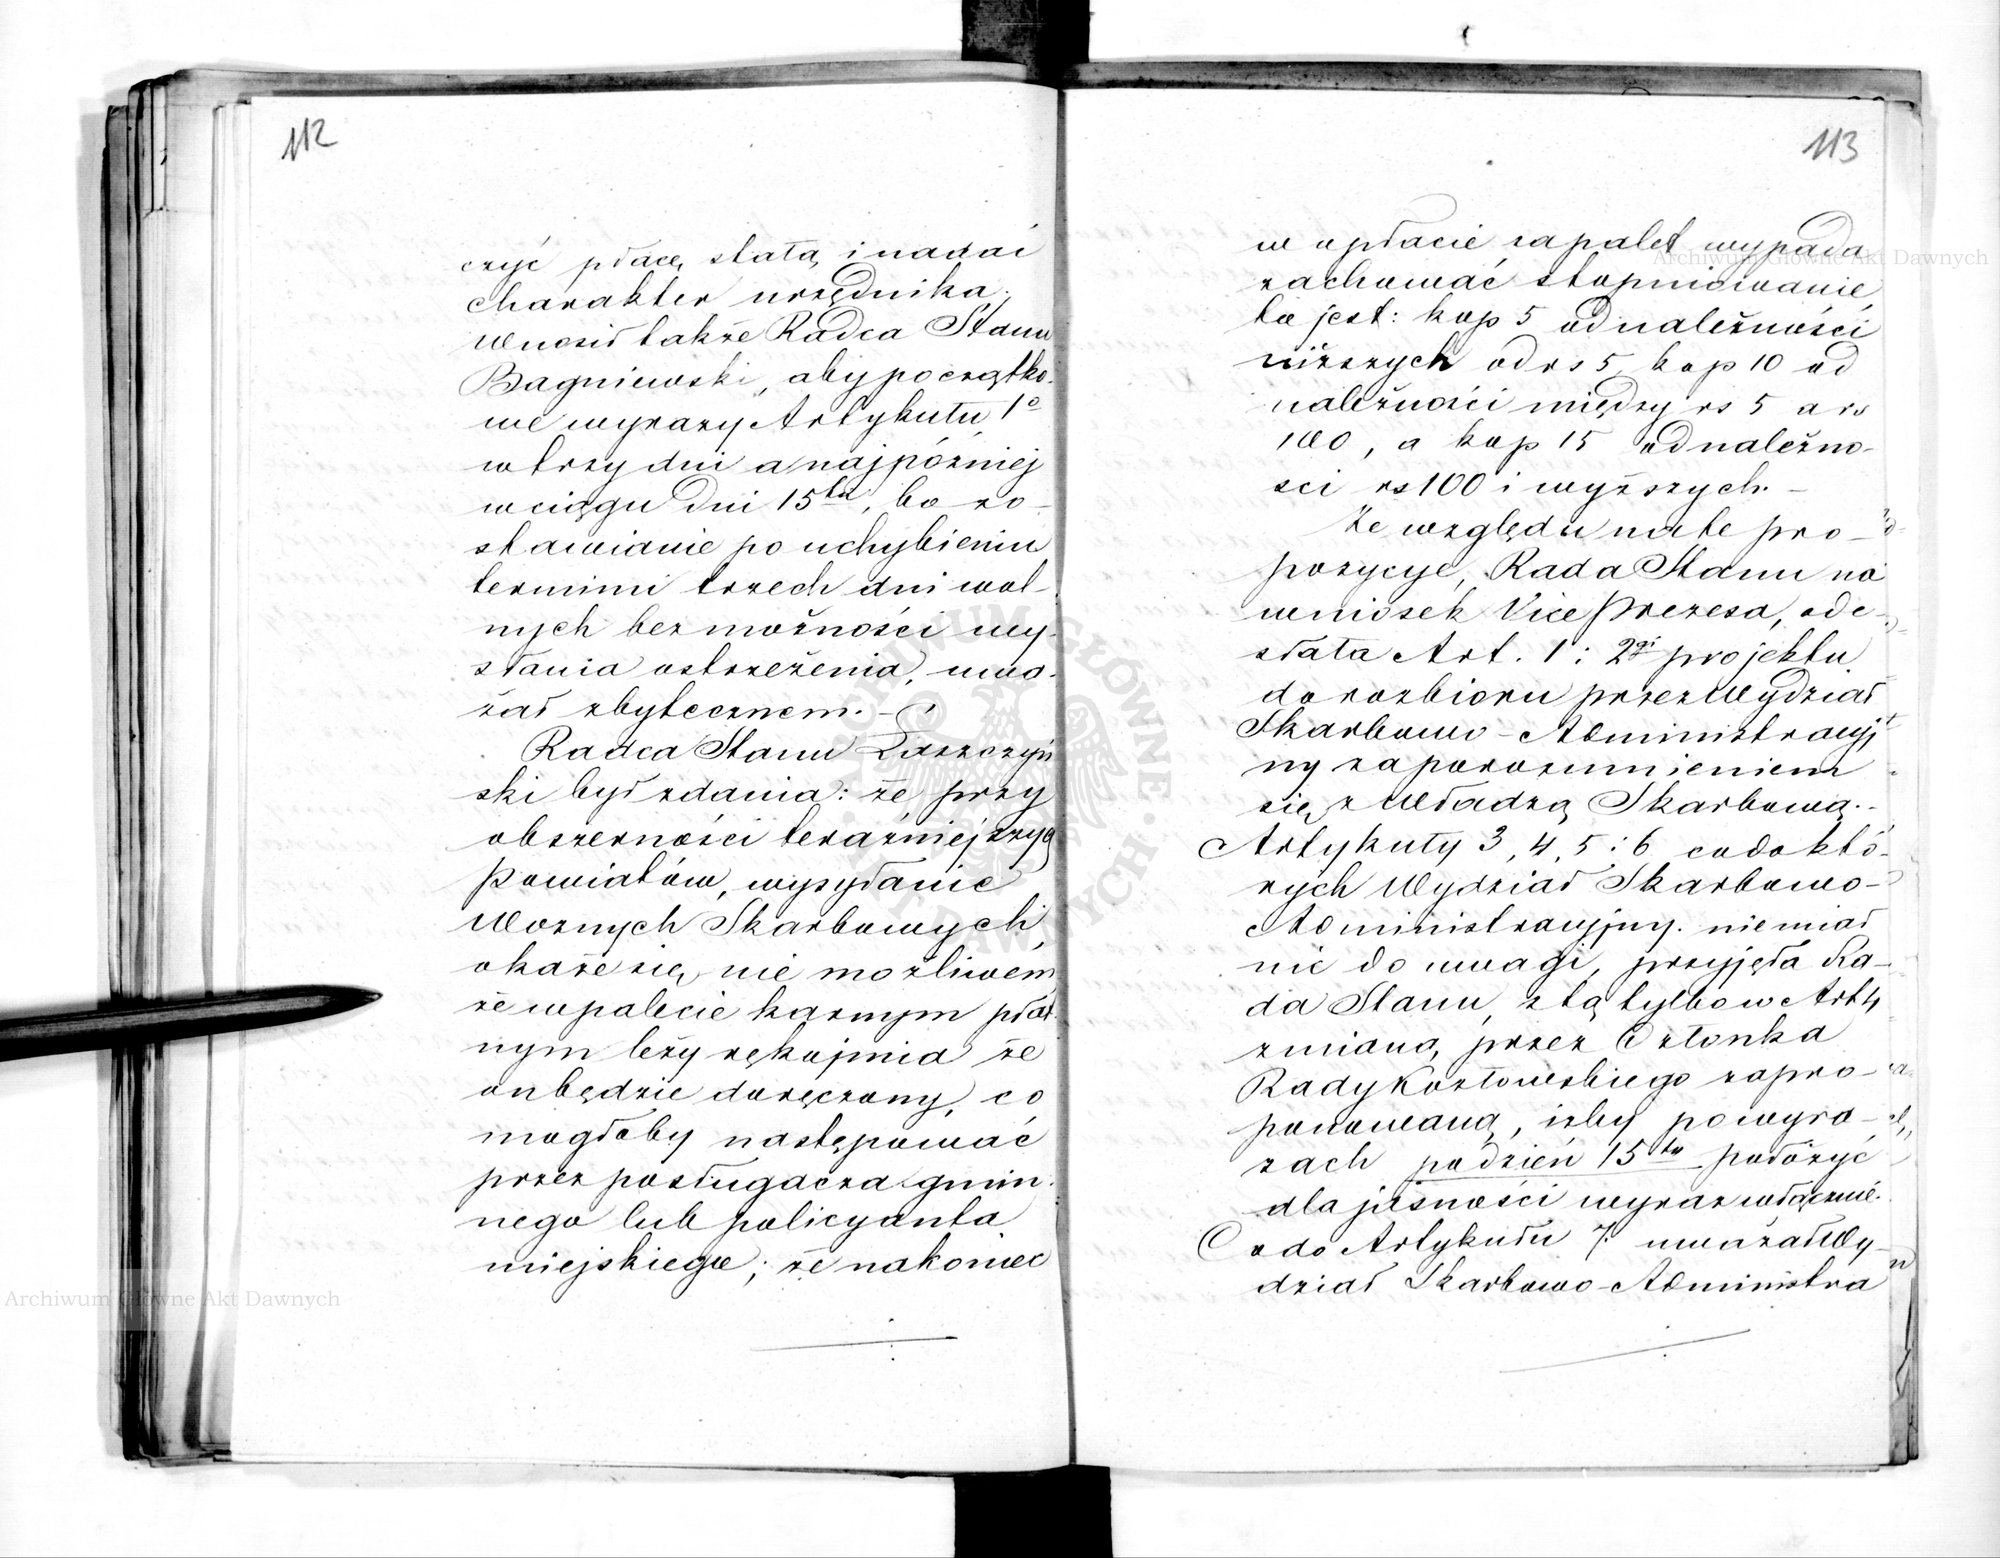 112
czyć płacę stałą i nadać
charakter urzędnika.
Wnosił także Radca Stanu
Bagniewski, aby początko-
we wyrazy Artykułu 1o
w trzy dni a najpóźniej
w ciągu dni 15tu, bo zo-
stawianie po uchybieniu
terminu trzech dni wol-
nych bez możności wy-
słania ostrzeżenia, uwa-
żał zbytecznem. -
Radca Stanu Łaszczyń
ski był zdania: że przy
obszerności teraźniejszych
Powiatów, wysyłanie
Woznych Skarbowych
okaże się nie możliwém
że w palecie karnym płat
nym leży rękojmia że
on będzie doręczony, co
mogłoby następować
przez posługacza gmin-
nego lub policyanta
miejskiego; że nakoniec
113
w opłacie za palet wypada
zachować stopniowanie,
to jest: kop 5 od należności
niższych od rs 5, kop 10 od
należności między rs 5 a rs
100, a kop 15 od należno-
sci rs 100 i wyższych. -
Ze względu na te pro-
pozycye, Rada Stanu na
wniosek Vice Prezesa, ode-
słała Art. 1 i 2gi projektu
do rozbioru przez Wydział
Skarbowo-Administracyj
ny za porozumieniem
się z Władzą Skarbową. -
Artykuły 3, 4, 5 i 6 co do któ-
rych Wydział Skarbowo-
Administracyjny. nie miał
nic do uwagi, przyjęła Ra-
da Stanu, z tą tylko w Art 4
zmianą, przez Członka
Rady Kozłowskiego zapro-
ponowaną, iżby po wyra-
zach po dzień 15ty położyć
dla jasności wyraz włącznie.
Co do Artykułu 7. uważał Wy-
dział Skarbowo-Administra
Archiwum Główne Akt Dawnych
Archiwum Główne Akt Dawnych
ARCHIWUM GŁÓWNE AKT DAWNYCH